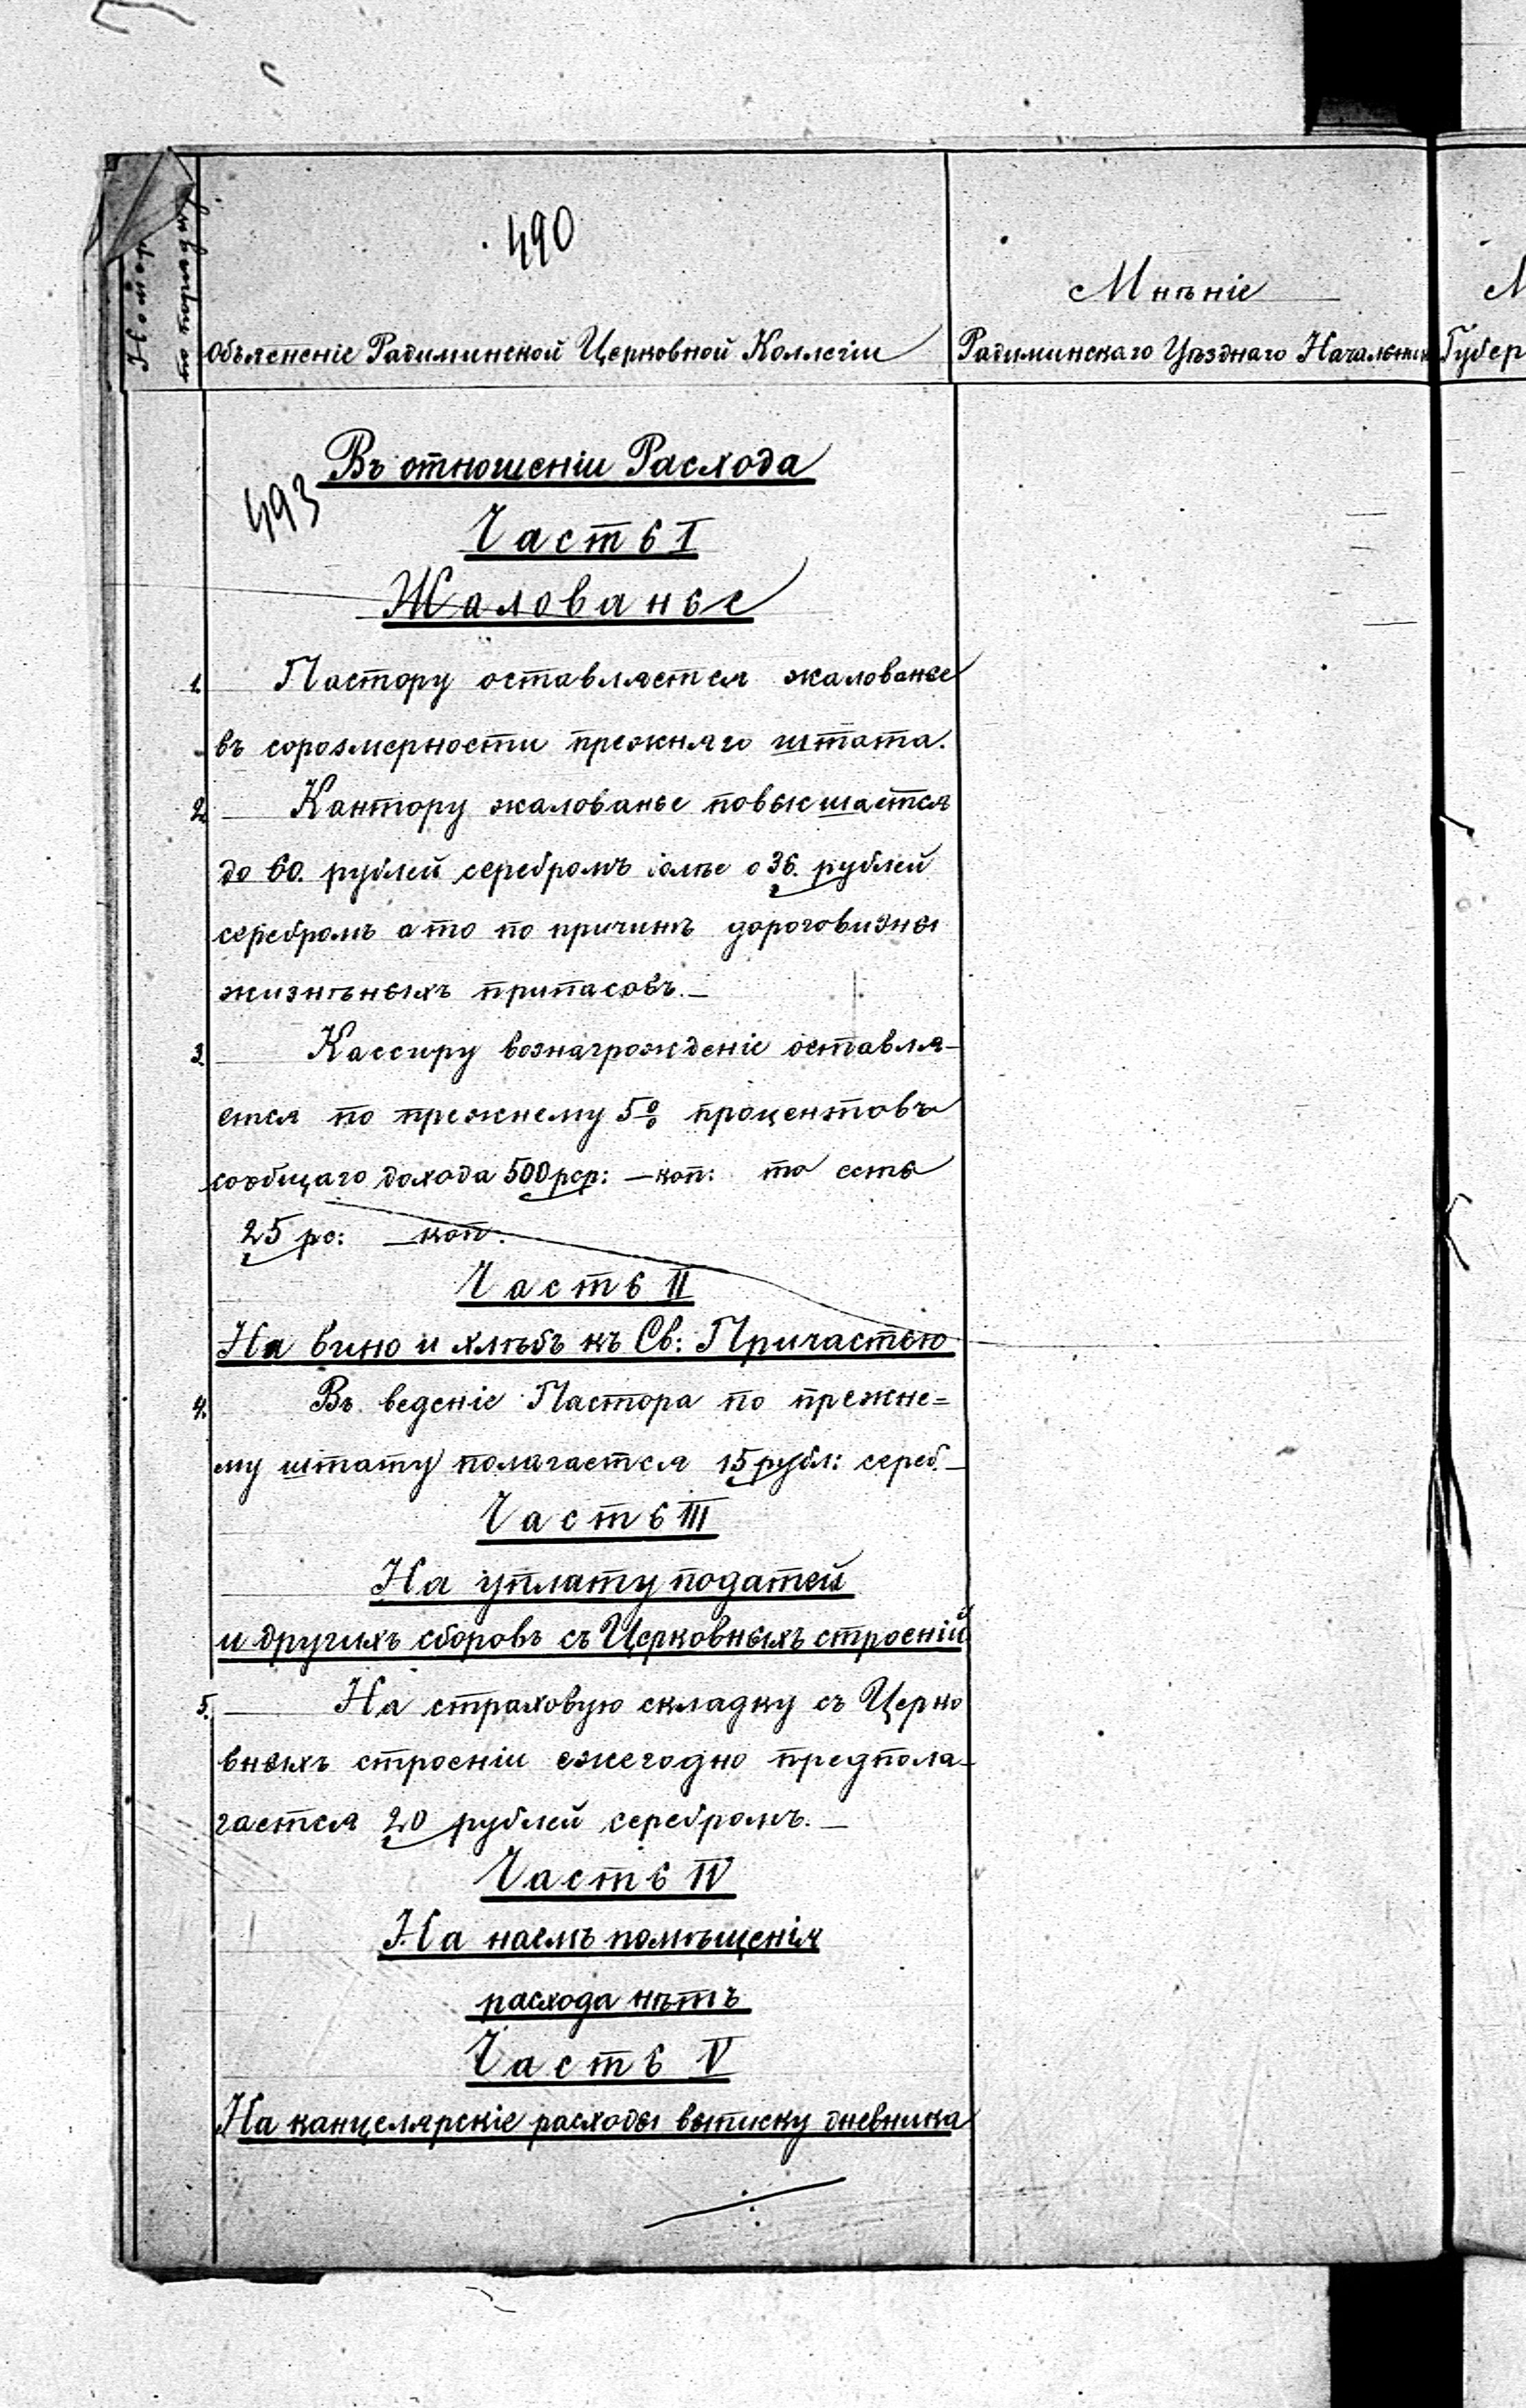 490
Мнѣніе
Объясненіе Радиминской Церковной Коллегіи
Радиминскаго Уѣзднаго Начальник
Губер
Въ отношеніи Расхода
493
Часть I
Жалованье
1. Пастору оставляется жалованье
въ соразмерности прежняго штата.
2. Кантору жалованье повысшается
до 60. рублей серебромъ о 36. рублей
серебромъ а то по причинѣ дороговизны
жизнѣныхъ припасовъ. —
3. Кассиру вознагрожденіе оставля-
ется по прежнему 5% процентовъ
сообщаго дохода 500 рср: — коп: то есть
25 рс: — коп.
Часть II
На вино и хлѣбъ къ Св: Причастью
4. Въ веденіе Пастора по прежне=
му штату полагается 15 рубл: сереб. —
Часть III
На уплату податей
и другихъ сборовъ съ Церковныхъ строеній
5. На страховую складку съ Церко
вныхъ строеніи ежегодно предпола-
гается 20 рублей серебромъ. —
Часть IV
На наемъ помѣщенія
расхода нѣтъ
Часть V
На канцелярскіе расходы выписку дневника